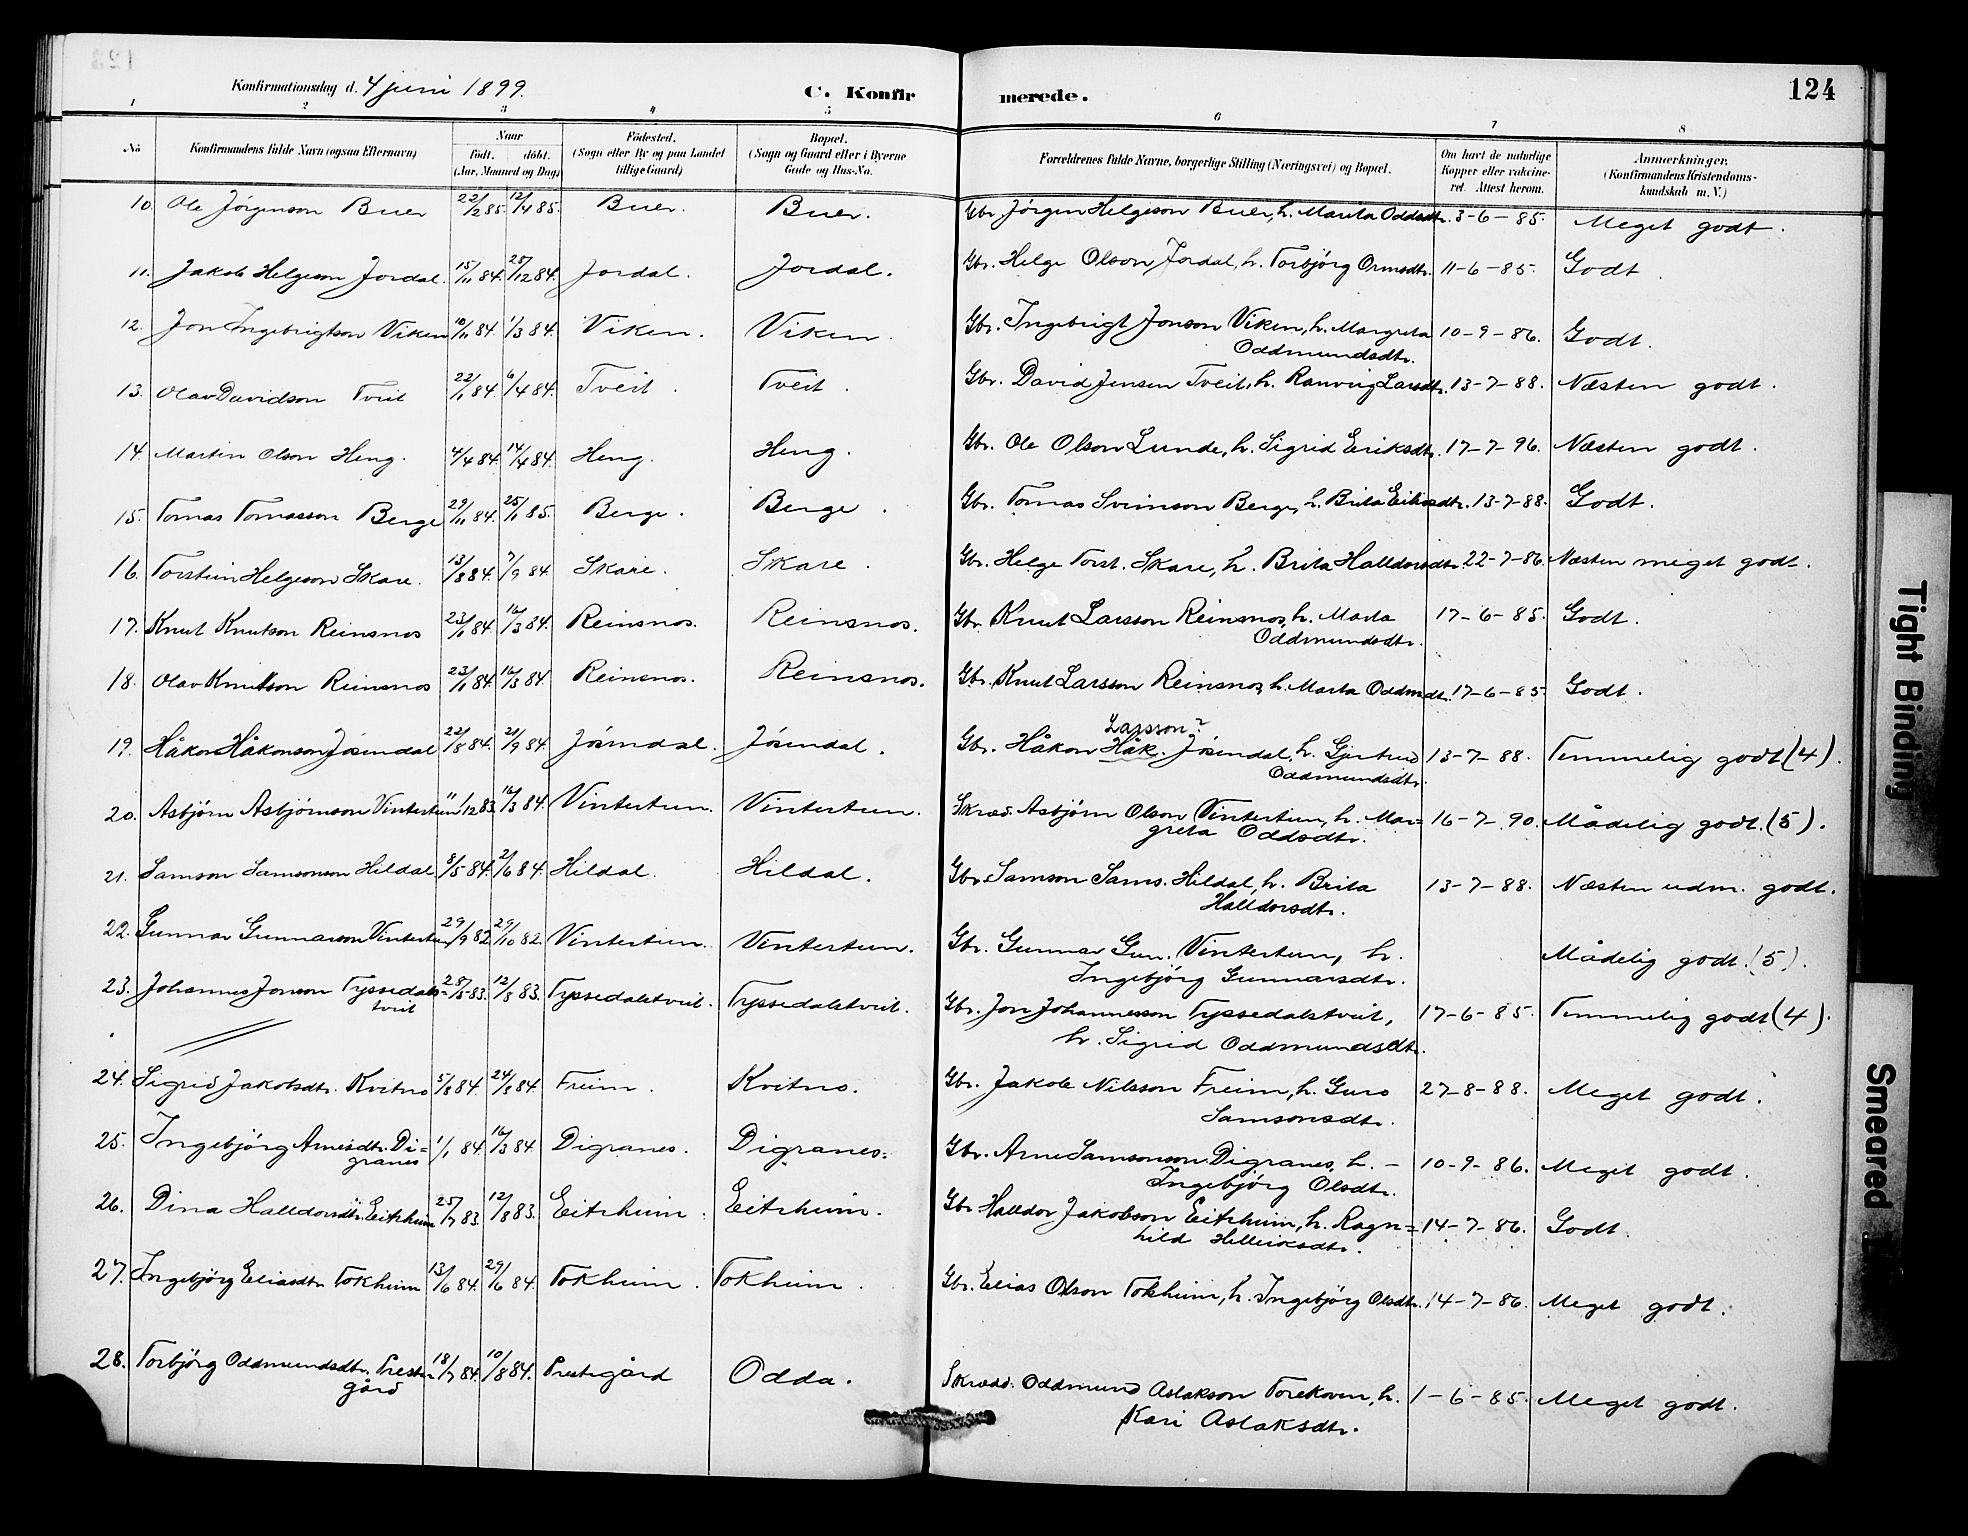 123
Konfirmationsdag d. 4 juni 1899. C. Konfirmerede. 124
1 2 3 4 5 6 7 8
No Konfirmandens fulde Navn (ogsaa Efternavn) Naar Född. döbt. (Aar, Maaned og Dag) Födested. (Sogn eller By og paa Landet tillige Gaard) Bopæl. (Sogn og Gaard eller i Byerne Gade og Hus-No. Forældrenes fulde Navne, borgerlige Stilling (Næringsvei) og Bopæl. Om havt de naturlige Kopper eller vaccineret. Attest herom. Anmærkninger. (Konfirmandens Kristendomskundskab m. V.)
10. Ole Jörgenson Buer 22/2 85. 12/4 85. Buer. Buer. Gbr. Jörgen Helgeson Buer, h. Marita Oddsdtr. 3-6-85. Meget godt.
11. Jakob Helgeson Jordal. 15/11 84. 25/12 84. Jordal. Jordal. Gbr. Helge Olson Jordal, h. Torbjörg Ormsdtr. 11-6-85. Godt
12. Jon Ingebrigtson Viken 10/11 84. 1/3 84. Viken. Viken. Gbr. Ingebrigt Jonson Viken, h. Margreta Oddmundsdtr. 10-9-86. Godt.
13. Olav Davidson Tveit 22/1 84. 6/4 84. Tveit. Tveit. Gbr. David Jensen Tveit, h. Ranveig Larsdtr. 13-7-88. Næsten godt.
14. Martin Olson Heng. 4/4 84. 14/4 84. Heng. Heng. Gbr. Ole Olson Lunde, h. Sigrid Eriksdtr. 17-7-96. Næsten godt.
15. Tomas Tomasson Berge 29/11 84. 25/1 85. Berge. Berge. Gbr. Tomas Sveinson Berge, h. Brita Eiriksdtr. 13-7-88. Godt.
16. Torstein Helgeson Skare. 13/8 84. 7/9 84. Skare. Skare. Gbr. Helge Torst. Skare, h. Brita Halldorsdtr. 22-7-86. Næsten meget godt.
17. Knut Knutson Reinsnos 23/1 84. 16/3 84. Reinsnos. Reinsnos. Gbr. Knut Larsson Reinsnos, h. Marta Oddmundsdtr. 17-6-85. Godt.
18. Olav Knutson Reinsnos 23/1 84. 16/3 84. Reinsnos. Reinsnos. Gbr. Knut Larsson Reinsnos, h. Marta Oddmdtr. 17-6-85. Godt.
19. Håkon Håkonson Jösendal 22/8 84. 21/9 84. Jösendal. Jösendal. Gbr. Håkon Håk. Larsson? Jösendal, h. Gjertrud Oddmundsdtr. 13-7-88. Temmelig godt (4).
20. Asbjörn Asbjörnson Vintertun 11/12 83. 16/3 84. Vintertun. Vintertun. Skræd. Asbjörn Olson Vintertun, h. Margreta Oddsdtr. 16-7-90. Mådelig godt. (5).
21. Samson Samsonson Hildal. 8/5 84. 2/6 84. Hildal. Hildal. Gbr. Samson Sams. Hildal, h. Brita Halldorsdtr. 13-7-88. Næsten udm. godt.
22. Gunnar Gunnarson Vintertun 29/9 82. 29/10 82. Vintertun. Vintertun. Gbr. Gunnar Gun. Vintertun, h. Ingebjörg Gunnarsdtr. Mådelig godt. (5).
23. Johannes Jonson Tyssedalstveit 28/5 83. 12/8 83. Tyssedalstveit. Tyssedalstveit. Gbr. Jon Johannesson Tyssedalstveit, h. Sigrid Oddmundsdtr. 17-6-85. Temmelig godt (4).
24. Sigrid Jakobsdtr. Kvitno 5/8 84. 24/8 84. Freim. Kvitno. Gbr. Jakob Nilsson Freim, h. Guro Samsonsdtr. 27-8-88. Meget godt.
25. Ingebjörg Arnesdtr. Digranes 1/1 84. 16/3 84. Digranes. Digranes. Gbr. Arne Samsonson Digranes, h. - Ingebjörg Olsdtr. 10-9-86. Meget godt.
26. Dina Halldorsdtr. Eitrheim 25/7 83. 12/8 83. Eitrheim. Eitrheim. Gbr. Halldor Jakobson Eitrheim, h. Ragnhild Helleiksdtr. 14-7-86. Godt.
27. Ingebjörg Eliasdtr Tokheim 13/6 84. 29/6 84. Tokheim. Tokheim. Gbr. Elias Olson Tokheim, h. Ingebjörg Olsdtr. 14-7-86. Meget godt.
28. Torbjörg Oddmundsdtr. Prestegård 18/7 84. 10/8 84. Prestegård Odda. Skræd. Oddmund Aslakson Torekoven, h. Kari Aslaksdtr. 1-6-85. Meget godt.
Tight Binding
Smeared